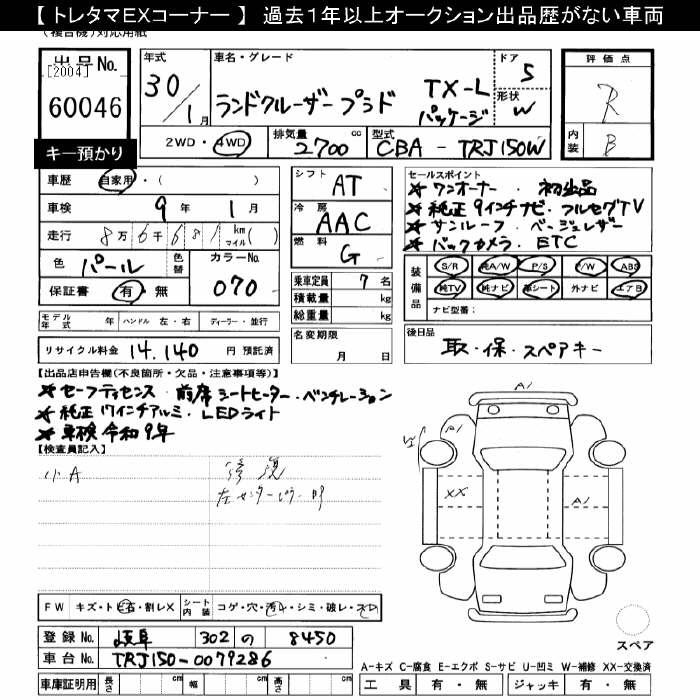 【 トレタマEXコーナー 】 過去1年以上オークション出品歴がない車両
(複合機)対応用紙
出品No. [2004] 60046
キー預かり
年式 30/1月
車名・グレード ランドクルーザープラド TX-L パッケージ
ドア 5
形状 W
評価点 R
内装 B
2WD・4WD 排気量 2700 cc 型式 CBA - TRJ150W
車歴 自家用・( )
車検 9年 1月
走行 8万6千681 km マイル( )
色 パール 色替 カラーNo. 070
保証書 有・無
シフト AT
冷房 AAC
燃料 G
乗車定員 7名
積載量 kg
総重量 kg
セールスポイント
ワンオーナー・初出品
純正9インチナビ・フルセグTV
サンルーフ・ベージュレザー
バックカメラ・ETC
装備品 S/R 純A/W P/S P/W ABS
純TV 純ナビ 革シート 外ナビ エアB
ナビ型番:
モデル年式 年 ハンドル 左・右 ディーラー・並行
名変期限 月 日
後日品 取・保・スペアキー
リサイクル料金 14,140 円 預託済
【出品店申告欄(不良箇所・欠品・注意事項等)】
セーフティセンス・前席シートヒーター・ベンチレーション
純正17インチアルミ・LEDライト
車検令和9年
【検査員記入】
小A 修復
左センターピラー
A1
A1
XX A1
FW キズ・トビ石・割レX シート内装 コゲ・穴・汚レ・シミ・破レ・スレ
登録No. 岐阜 302 の 8450
車台No. TRJ150-0079286
車庫証明用 長さ cm 幅 cm 高さ cm
スペア
A-キズ C-腐食 E-エクボ S-サビ U-凹ミ W-補修 XX-交換済
工具 有・無 ジャッキ 有・無